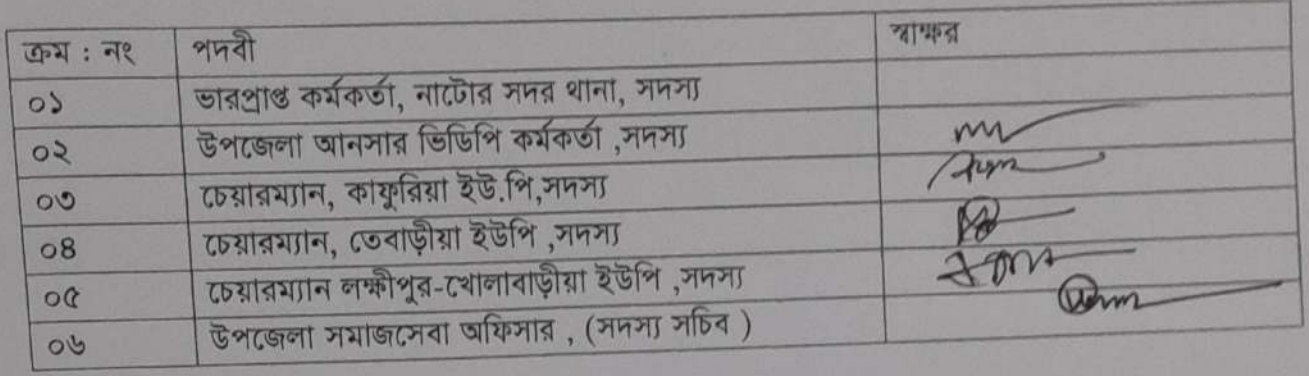 ক্রম : নং পদবী স্বাক্ষর
০১ ভারপ্রাপ্ত কর্মকর্তা, নাটোর সদর থানা, সদস্য
০২ উপজেলা আনসার ভিডিপি কর্মকর্তা ,সদস্য
০৩ চেয়ারম্যান, কাফুরিয়া ইউ.পি,সদস্য
০৪ চেয়ারম্যান, তেবাড়ীয়া ইউপি ,সদস্য
০৫ চেয়ারম্যান লক্ষীপুর-খোলাবাড়ীয়া ইউপি ,সদস্য
০৬ উপজেলা সমাজসেবা অফিসার , (সদস্য সচিব )